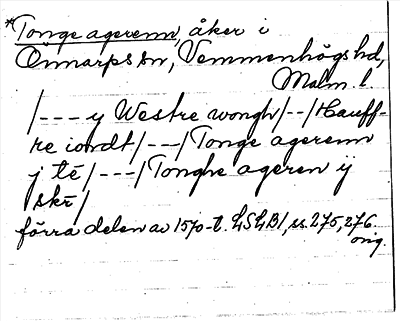 *Tonge agerenn, åker i
Önnarps sn, Vemmenhögs hd,
Malm. l.
/--- y Westre wongh/--/Hauff-
re iordt/---/Tonge agerenn
j tē/---/Tonghe ageren ÿ
skr̄/
förra delen av 1570-t. LSLB1, ss. 275, 276.
orig.